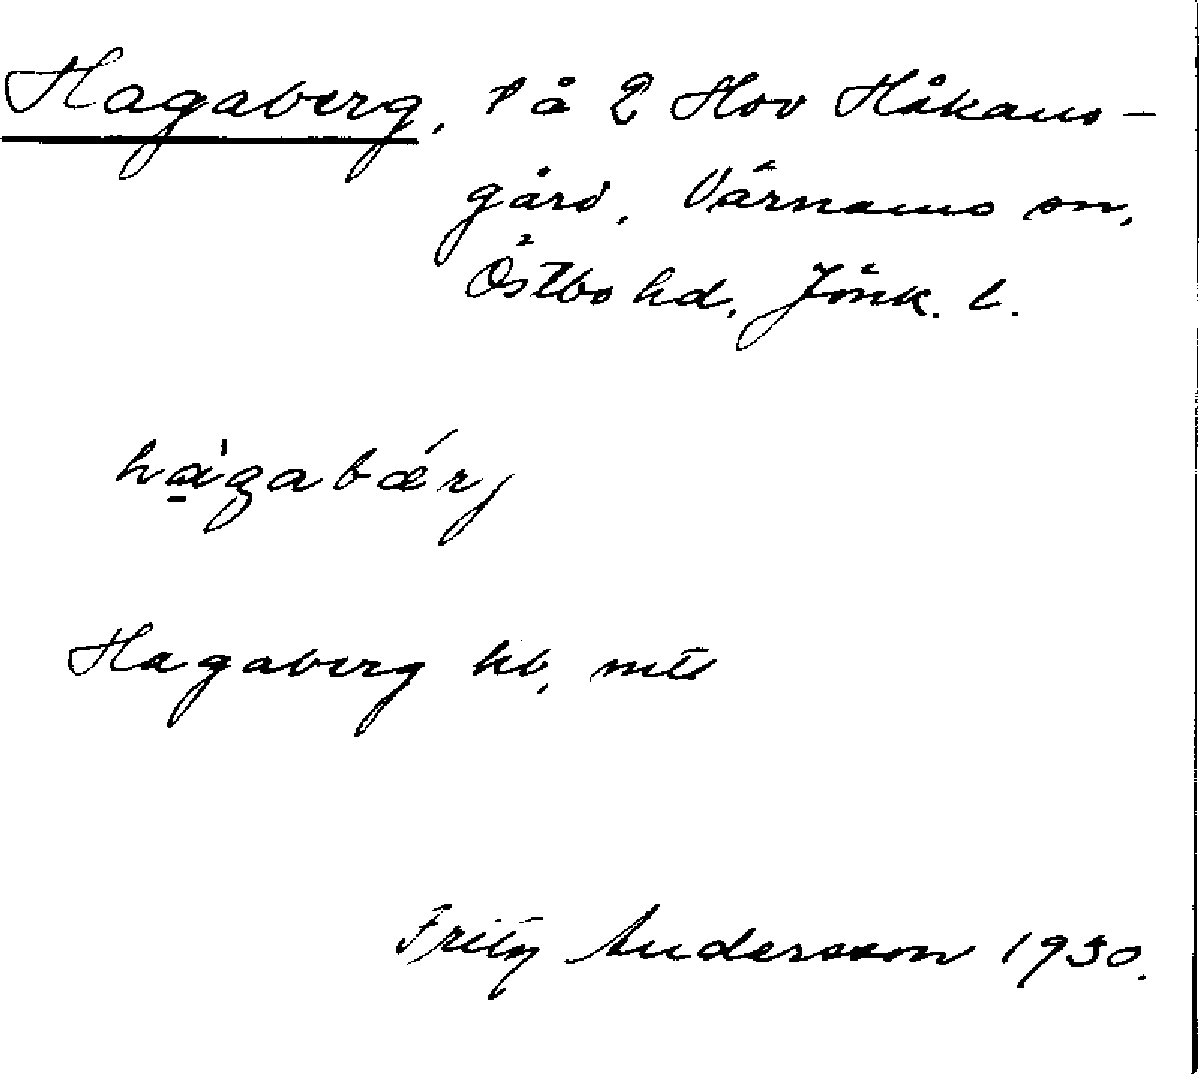 Hagaberg, 1 å 2 Hov Håkans-
gård, Värnamo sn,
Östbo hd, Jönk. l.
hà̱gabǽrj
Hagaberg hb,
Fritz Andersson 1930.